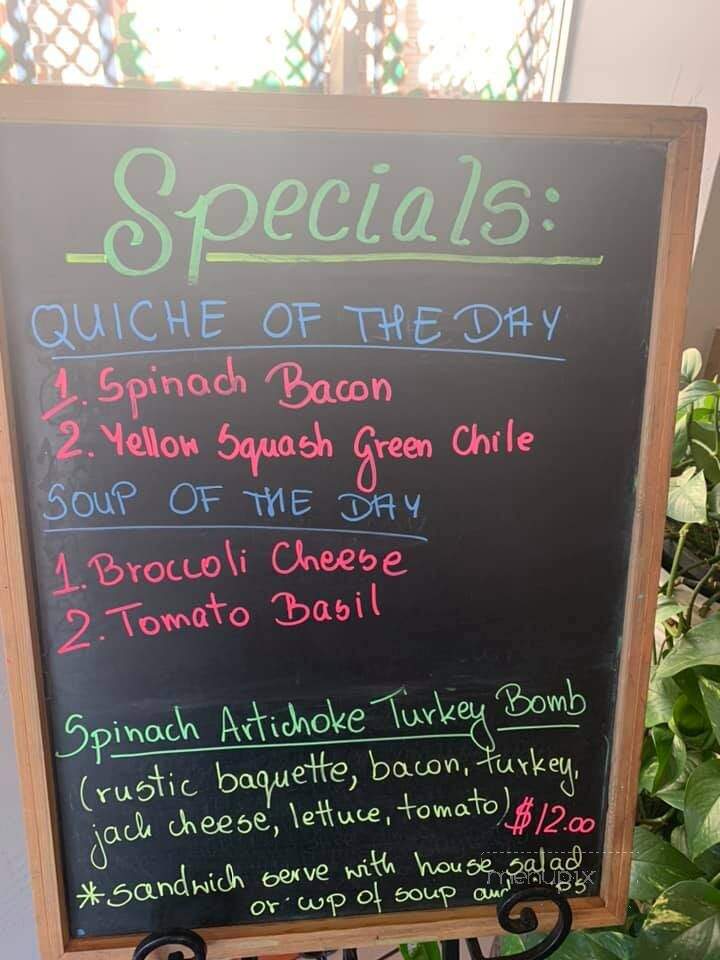 Specials:
QUICHE OF THE DAY
1. Spinach Bacon
2. Yellow Squash Green Chile
SOUP OF THE DAY
1. Broccoli Cheese
2. Tomato Basil
Spinach Artichoke Turkey Bomb
(rustic baquette, bacon, turkey,
jack cheese, lettuce, tomato) $12.00
*sandwich serve with house salad
or cup of soup
menupix